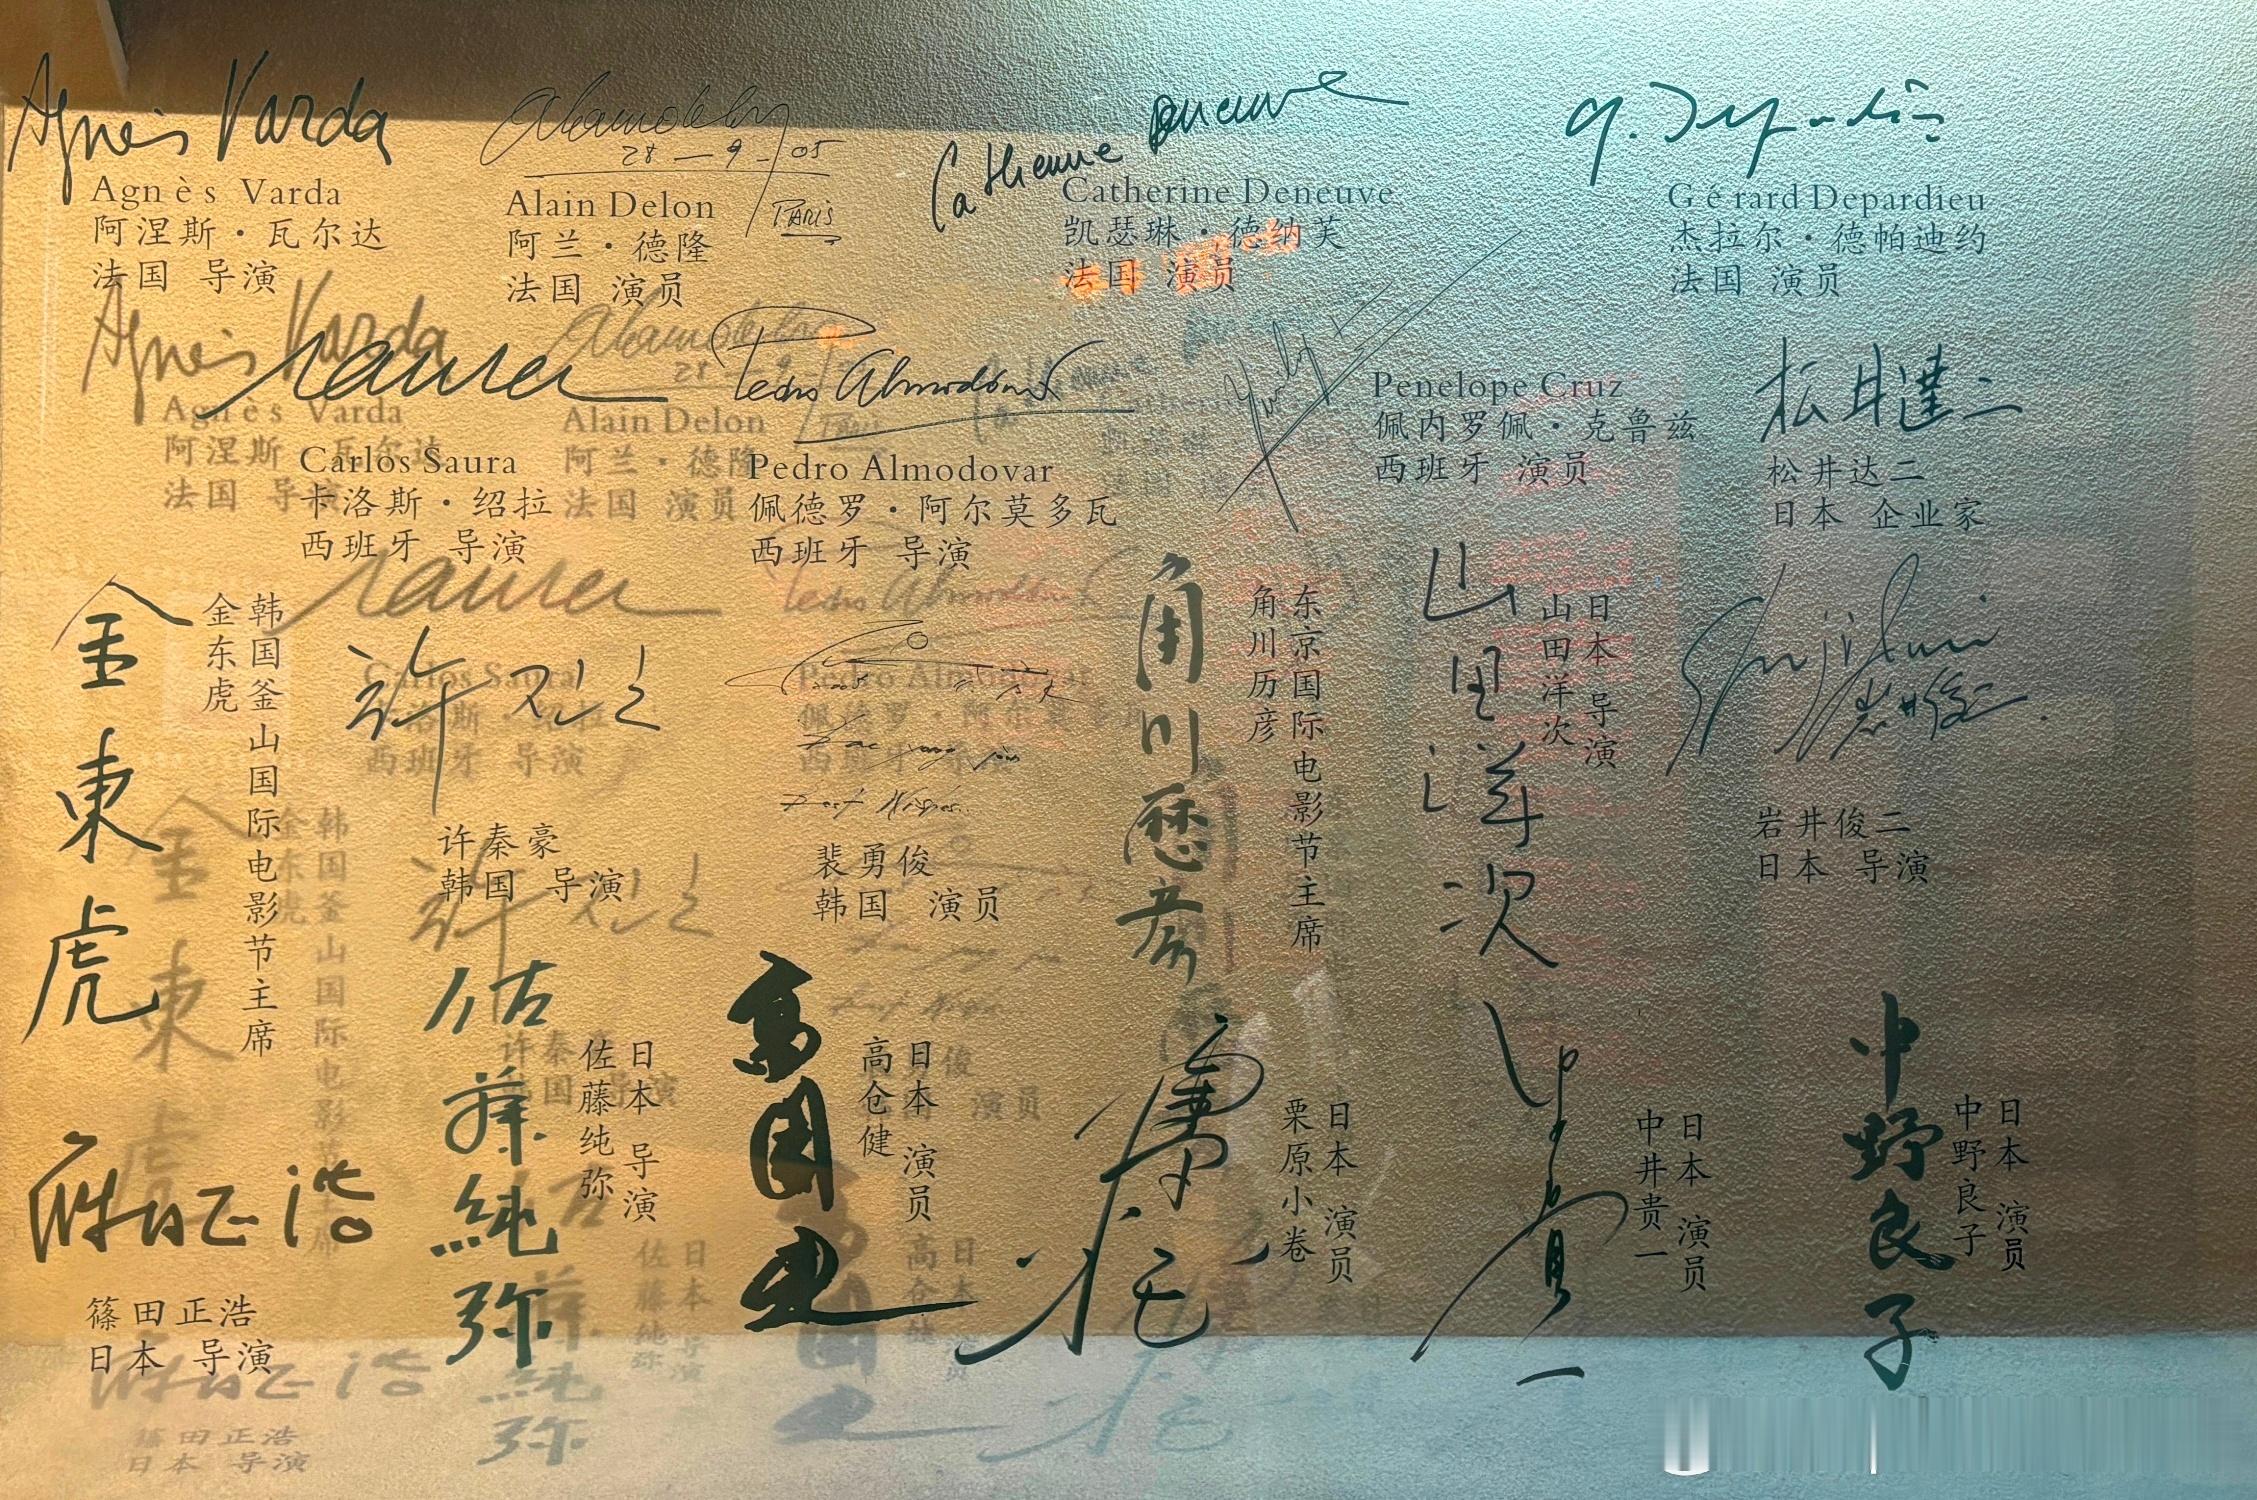 Agnès Varda
Agnès Varda
阿涅斯·瓦尔达
法国 导演
28-9-05
PARIS
Alain Delon
阿兰·德隆
法国 演员
Catherine Deneuve
Catherine Deneuve
凯瑟琳·德纳芙
法国 演员
Gérard Depardieu
杰拉尔·德帕迪约
法国 演员
Carlos Saura
卡洛斯·绍拉
西班牙 导演
Pedro Almodóvar
Pedro Almodovar
佩德罗·阿尔莫多瓦
西班牙 导演
Penelope Cruz
佩内罗佩·克鲁兹
西班牙 演员
松井达二
日本 企业家
金東虎
韩国釜山国际电影节主席
金东虎
许秦豪
韩国 导演
裴勇俊
韩国 演员
角川歴彦
东京国际电影节主席
角川历彦
山田洋次
日本 导演
山田洋次
岩井俊二
岩井俊二
日本 导演
篠田正浩
日本 导演
佐藤純弥
日本 导演
佐藤纯弥
日本 演员
高仓健
日本 演员
栗原小卷
日本 演员
中井贵一
中野良子
日本 演员
中野良子